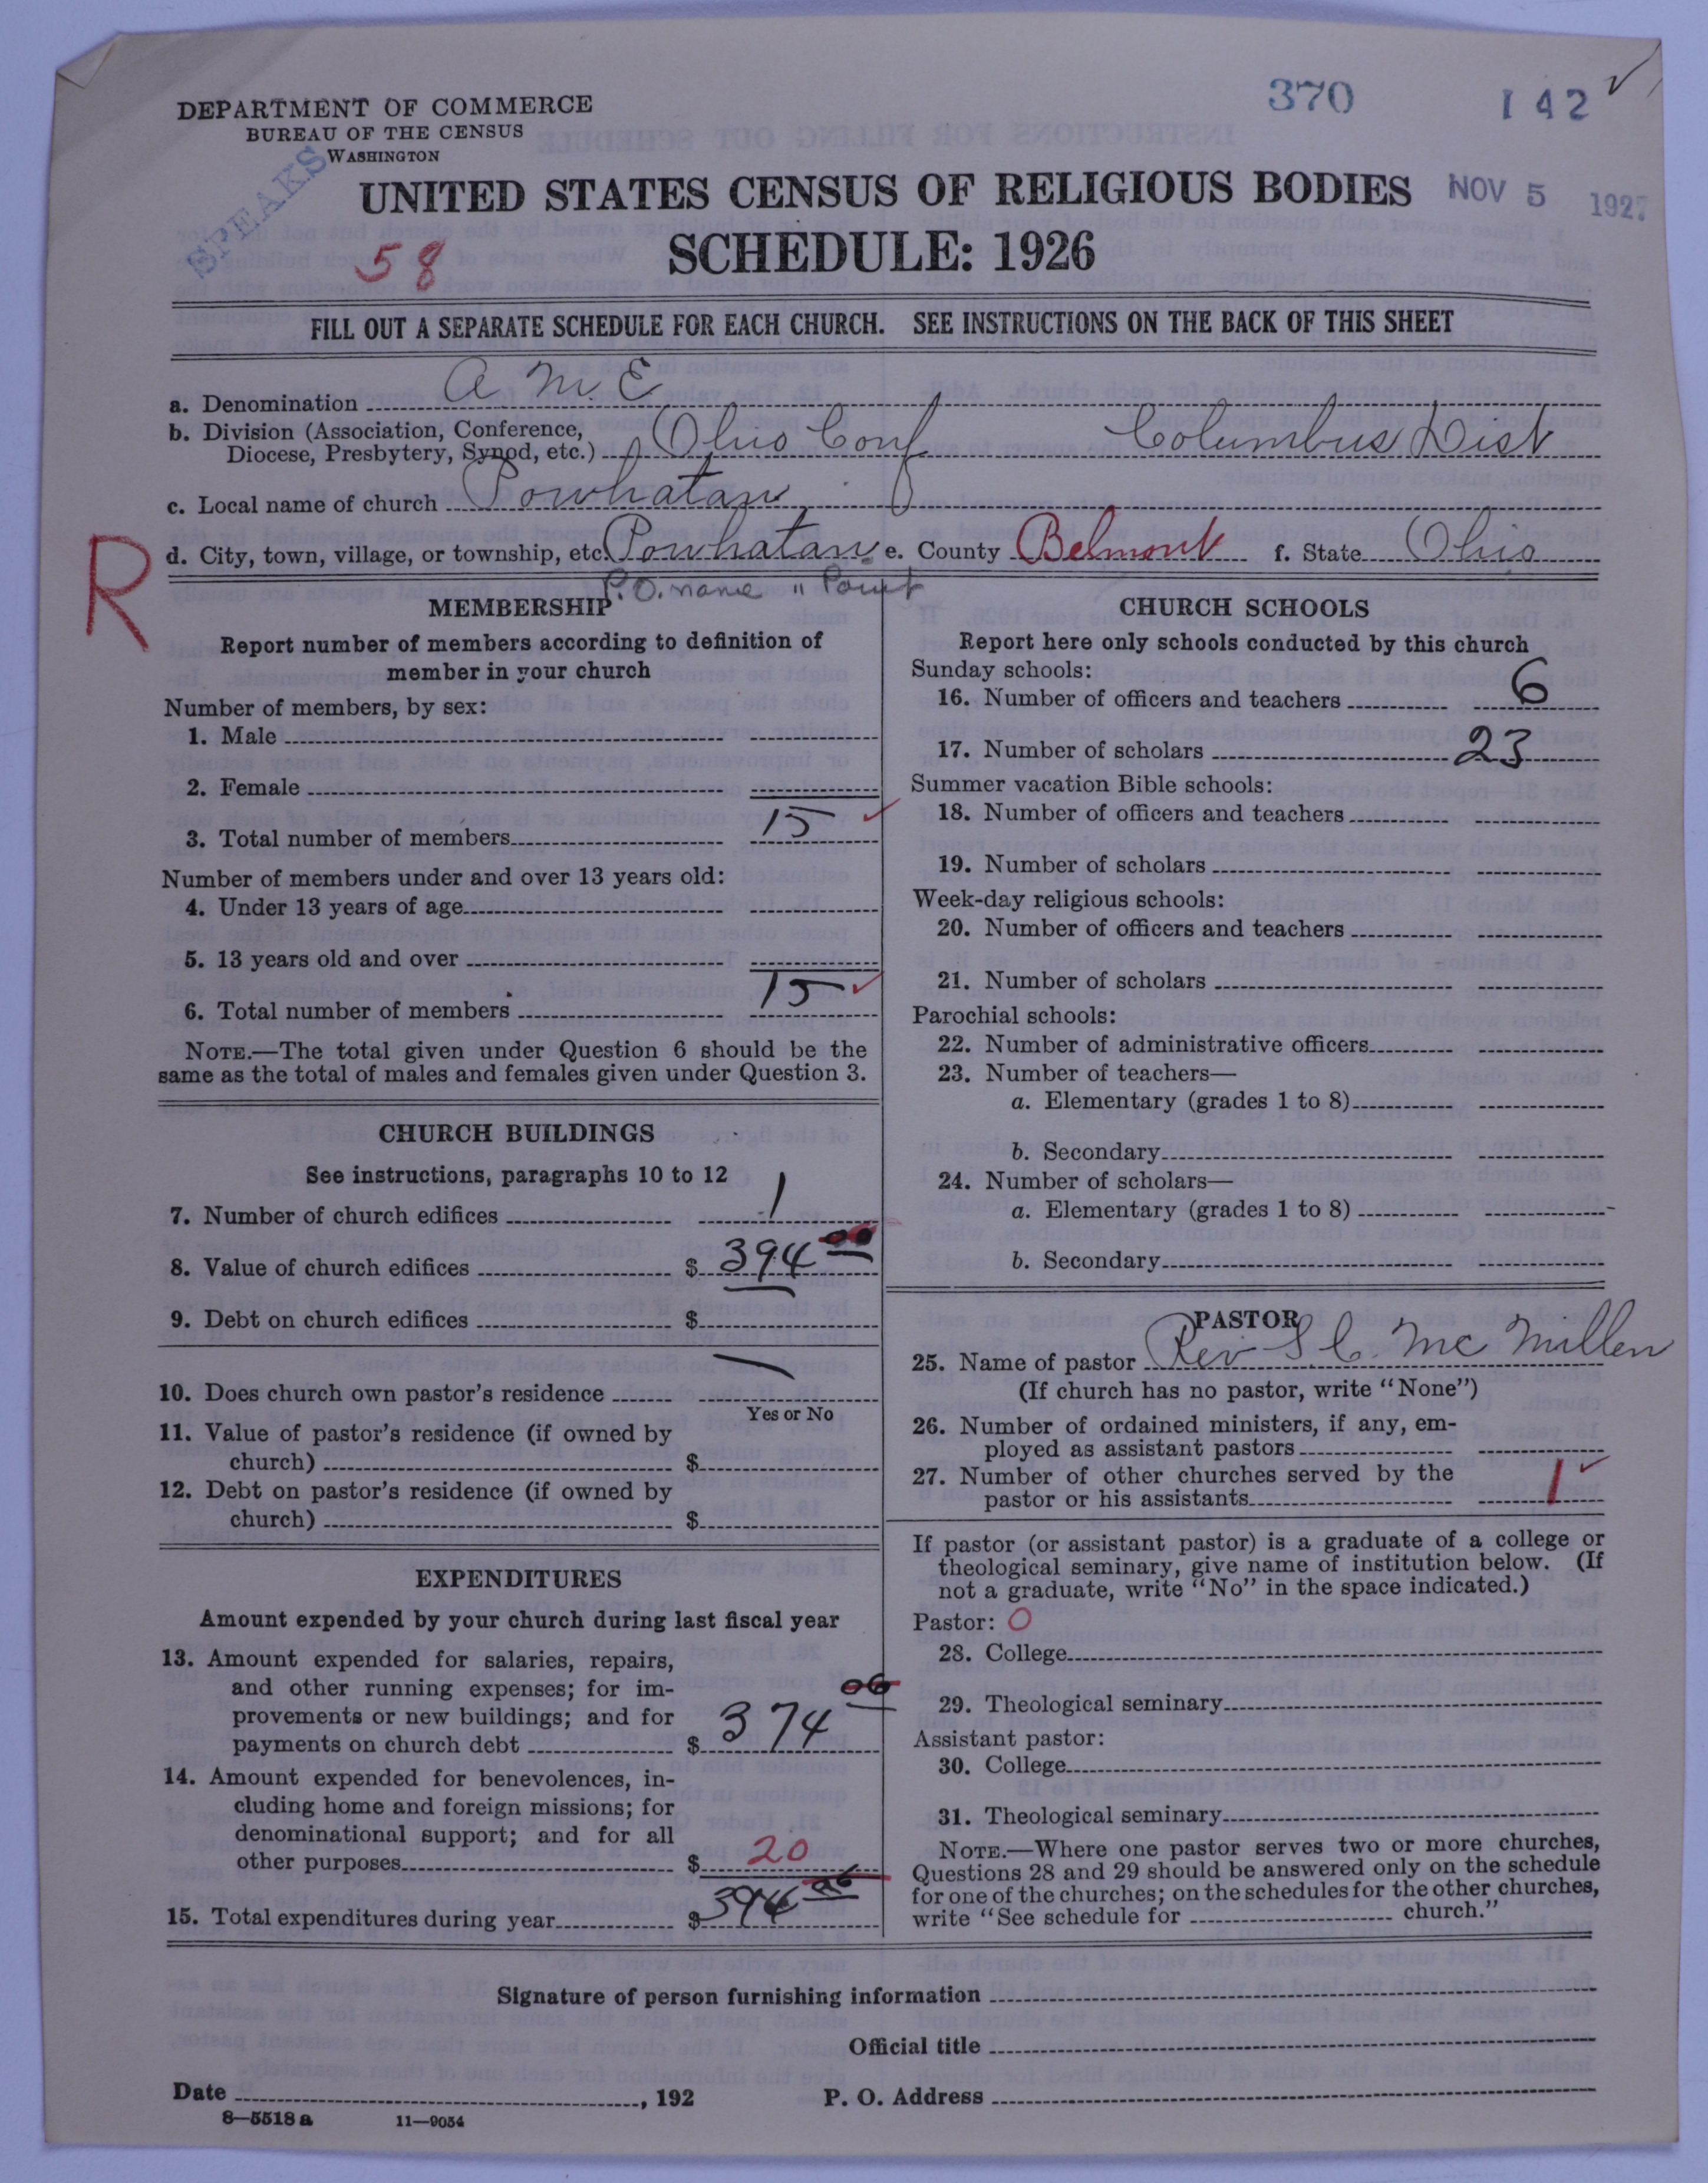 370 142 ✓
DEPARTMENT OF COMMERCE
BUREAU OF THE CENSUS
WASHINGTON
SPEAKS
UNITED STATES CENSUS OF RELIGIOUS BODIES
NOV 5 1927
58
SCHEDULE: 1926
FILL OUT A SEPARATE SCHEDULE FOR EACH CHURCH. SEE INSTRUCTIONS ON THE BACK OF THIS SHEET
a. Denomination A M E
b. Division (Association, Conference,
Diocese, Presbytery, Synod, etc.) Ohio Conf Columbus Dist
c. Local name of church Powhatan
R
d. City, town, village, or township, etc. Powhatan e. County Belmont f. State Ohio
P.O. name " Point
MEMBERSHIP
Report number of members according to definition of
member in your church
Number of members, by sex:
1. Male
2. Female
3. Total number of members 15 ✓
Number of members under and over 13 years old:
4. Under 13 years of age
5. 13 years old and over
6. Total number of members 15 ✓
NOTE.—The total given under Question 6 should be the
same as the total of males and females given under Question 3.
CHURCH BUILDINGS
See instructions, paragraphs 10 to 12
7. Number of church edifices 1
8. Value of church edifices $ 394 00
9. Debt on church edifices $
10. Does church own pastor's residence —
Yes or No
11. Value of pastor's residence (if owned by
church) $
12. Debt on pastor's residence (if owned by
church) $
EXPENDITURES
Amount expended by your church during last fiscal year
13. Amount expended for salaries, repairs,
and other running expenses; for im-
provements or new buildings; and for
payments on church debt $ 374 06
14. Amount expended for benevolences, in-
cluding home and foreign missions; for
denominational support; and for all
other purposes $ 20
15. Total expenditures during year $ 394 06
CHURCH SCHOOLS
Report here only schools conducted by this church
Sunday schools:
16. Number of officers and teachers 6
17. Number of scholars 23
Summer vacation Bible schools:
18. Number of officers and teachers
19. Number of scholars
Week-day religious schools:
20. Number of officers and teachers
21. Number of scholars
Parochial schools:
22. Number of administrative officers
23. Number of teachers—
a. Elementary (grades 1 to 8)
b. Secondary
24. Number of scholars—
a. Elementary (grades 1 to 8)
b. Secondary
PASTOR
25. Name of pastor Rev S C. Mc Millen
(If church has no pastor, write "None")
26. Number of ordained ministers, if any, em-
ployed as assistant pastors
27. Number of other churches served by the
pastor or his assistants 1 ✓
If pastor (or assistant pastor) is a graduate of a college or
theological seminary, give name of institution below. (If
not a graduate, write "No" in the space indicated.)
Pastor: 0
28. College
29. Theological seminary
Assistant pastor:
30. College
31. Theological seminary
NOTE.—Where one pastor serves two or more churches,
Questions 28 and 29 should be answered only on the schedule
for one of the churches; on the schedules for the other churches,
write "See schedule for church."
Signature of person furnishing information
Official title
Date , 192 P. O. Address
8—5518 a 11—9054